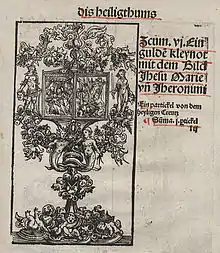 dis heiligthums
Zcum. vj. Ein
guldē kleynot
mit dem Bild
Jhesu Marie
vn̄ Jheronimi
Ein partickel von dem
heyligen Creutz
¶ Sūma. j. ptickel